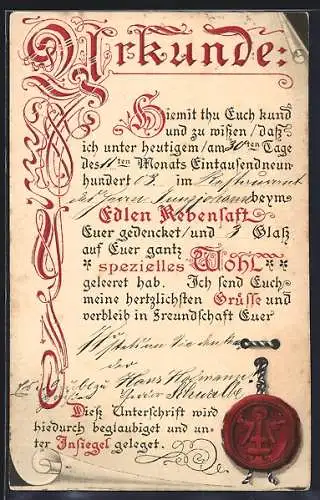 Urkunde:
Hiemit thu Euch kund
und zu wißen / daß
ich unter heutigem / am 30ten Tage
des 11ten Monats Eintausendneun-
hundert 03. im Restaurant
beym
Edlen Rebensaft
Euer gedencket / und 3 Glaß
auf Euer gantz
spezielles Wohl
geleeret hab. Ich send Euch
meine hertzlichsten Grüsse und
verbleib in Freundschaft Euer
der
Hans
Dieß Unterschrift wird
hiedurch beglaubiget und un-
ter Insiegel geleget.